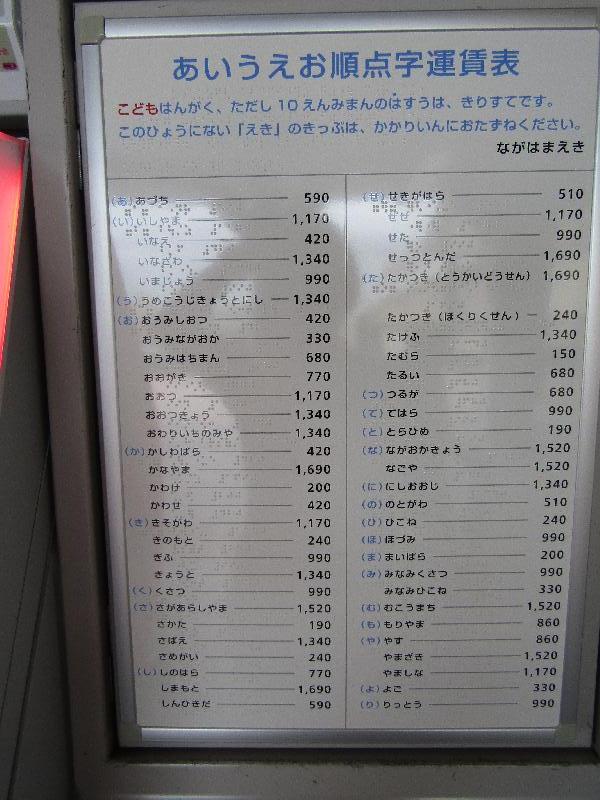 あいうえお順点字運賃表
こどもはんがく、ただし10えんみまんのはすうは、きりすてです。
このひょうにない「えき」のきっぷは、かかりいんにおたずねください。
ながはまえき
(あ) あづち 590
(い) いしやま 1,170
いなえ 420
いなざわ 1,340
いまじょう 990
(う) うめこうじきょうとにし 1,340
(お) おうみしおつ 420
おうみながおか 330
おうみはちまん 680
おおがき 770
おおつ 1,170
おおつきょう 1,340
おわりいちのみや 1,340
(か) かしわばら 420
かなやま 1,690
かわけ 200
かわせ 420
(き) きそがわ 1,170
きのもと 240
ぎふ 990
きょうと 1,340
(く) くさつ 990
(さ) さがあらしやま 1,520
さかた 190
さばえ 1,340
さめがい 240
(し) しのはら 770
しまもと 1,690
しんひきだ 590
(せ) せきがはら 510
ぜぜ 1,170
せた 990
せっつとんだ 1,690
(た) たかつき (とうかいどうせん) 1,690
たかつき (ほくりくせん) 240
たけふ 1,340
たむら 150
たるい 680
(つ) つるが 680
(て) てはら 990
(と) とらひめ 190
(な) ながおかきょう 1,520
なごや 1,520
(に) にしおおじ 1,340
(の) のとがわ 510
(ひ) ひこね 240
(ほ) ほづみ 990
(ま) まいばら 200
(み) みなみくさつ 990
みなみひこね 330
(む) むこうまち 1,520
(も) もりやま 860
(や) やす 860
やまざき 1,520
やましな 1,170
(よ) よご 330
(り) りっとう 990